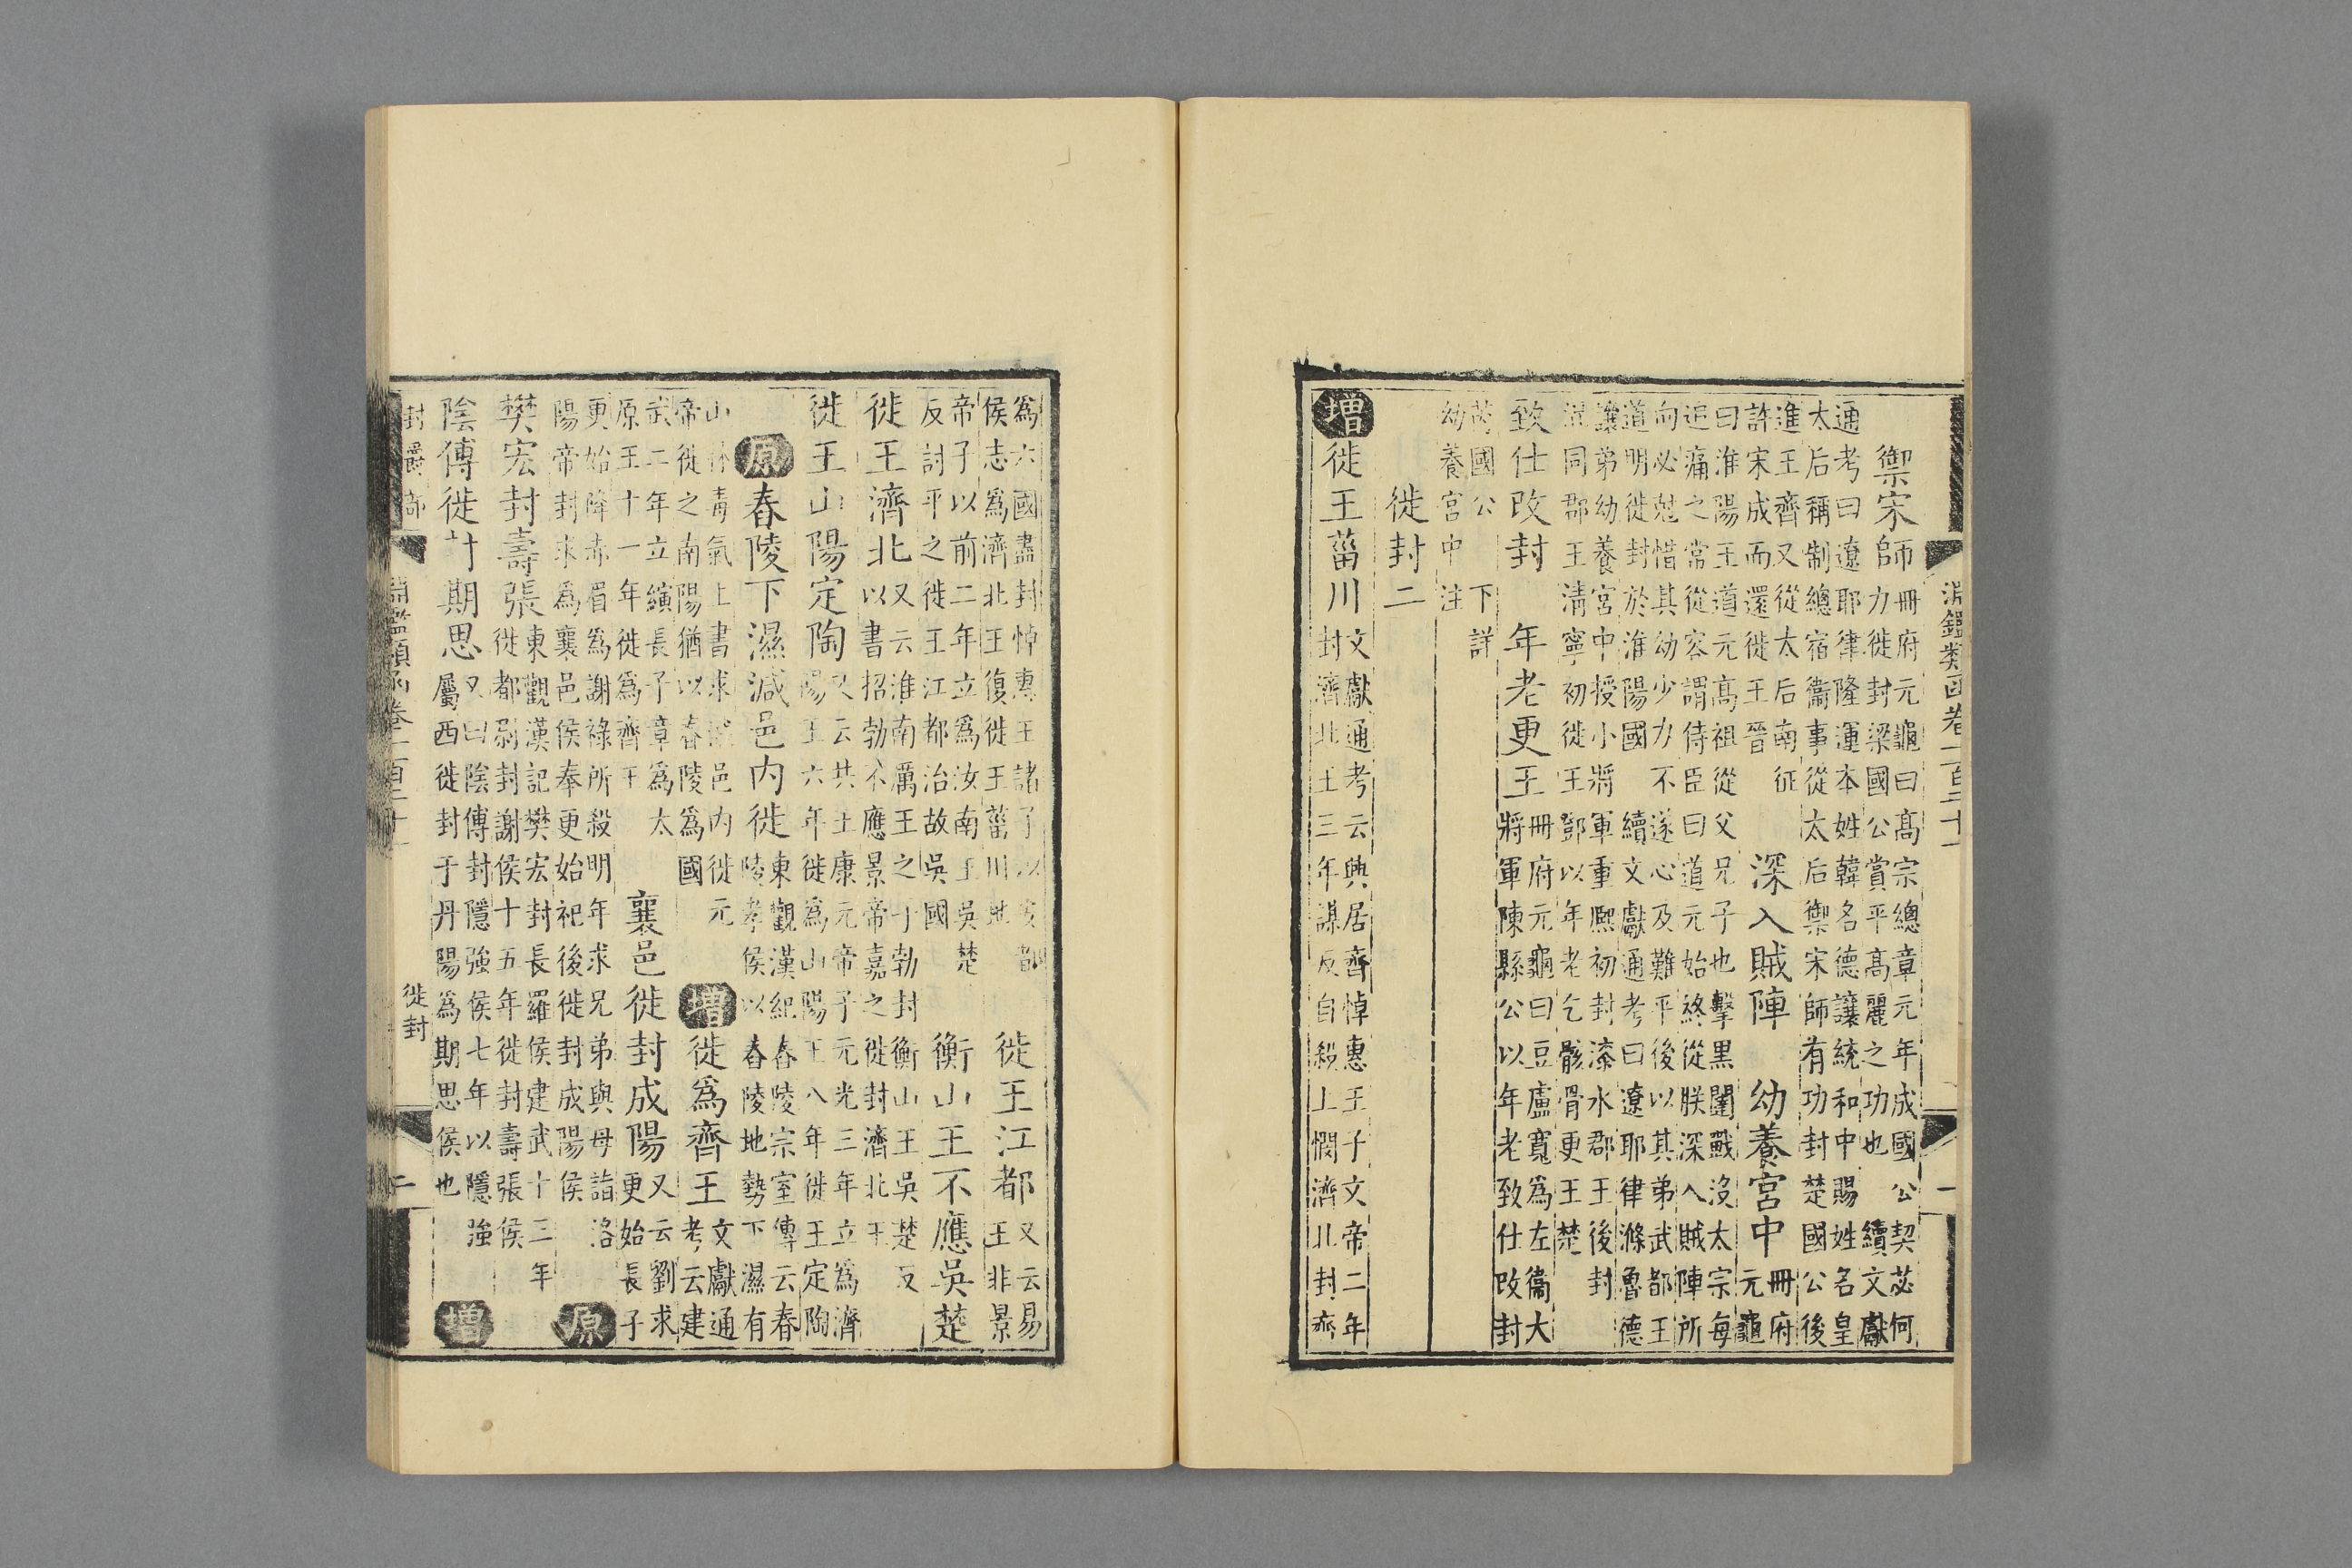 淵鑑類函卷一百二十一 一
禦宋師
冊府元龜曰髙宗總章元年成國公契苾何
力徙封梁國公賞平髙麗之功也 續文獻
通考曰遼耶律隆運本姓韓名德讓統和中賜姓名皇
太后稱制總宿衞事從太后禦宋師有功封楚國公後
進王齊又從太后南征
許宋成而還徙王晉
深入賊陣 幼養宮中
冊府
元龜
曰淮陽王道元髙祖從父兄子也擊黑闥戰沒太宗每
追痛之常從容謂侍臣曰道元始終從朕深入賊陣所
向必剋惜其幼少力不遂心及難平後以其弟武都王
道明徙封於淮陽國 續文獻通考曰遼耶律滌魯德
讓弟幼養宮中授小將軍重熈初封漆水郡王後封
混同郡王清寧初徙王鄧以年老乞骸骨更王楚
致仕改封 年老更王
冊府元龜曰豆盧寬爲左衞大
將軍陳縣公以年老致仕改封
芮國公 下詳
幼養宮中注
徙封二
增徙王菑川
文獻通考云興居齊悼惠王子文帝二年
封濟北王三年謀反自殺上憫濟北封齊
爲六國盡封悼惠王諸子以安都
侯志爲濟北王復徙王菑川地
徙王江都
又云易
王非景
帝子以前二年立爲汝南王吳楚
反討平之徙王江都治故吳國
衡山王不應吳楚
徙王濟北
又云淮南厲王之子勃封衡山王吳楚反
以書招勃不應景帝嘉之徙封濟北王
徙王山陽定陶
又云共王康元帝子元光三年立爲濟
陽王六年徙爲山陽王八年徙王定陶
原舂陵下濕減邑内徙
東觀漢紀舂陵宗室傳云舂
陵孝侯以舂陵地勢下濕有
山林毒氣上書求減邑内徙元
帝徙之南陽猶以舂陵爲國
增徙爲齊王
文獻通
考云建
武二年立縯長子章爲太
原王十一年徙爲齊王
襄邑徙封成陽
又云劉求
更始長子
更始降赤眉爲謝祿所殺明年求兄弟與母詣洛
陽帝封求爲襄邑侯奉更始祀後徙封成陽侯
原
樊宏封壽張
東觀漢記樊宏封長羅侯建武十三年
徙都尉封謝侯十五年徙封壽張侯
陰傅徙封期思
又曰陰傅封隱強侯七年以隱強
屬西徙封于丹陽爲期思侯也
增
封爵部 淵鑑類函卷一百二十一 徙封 二